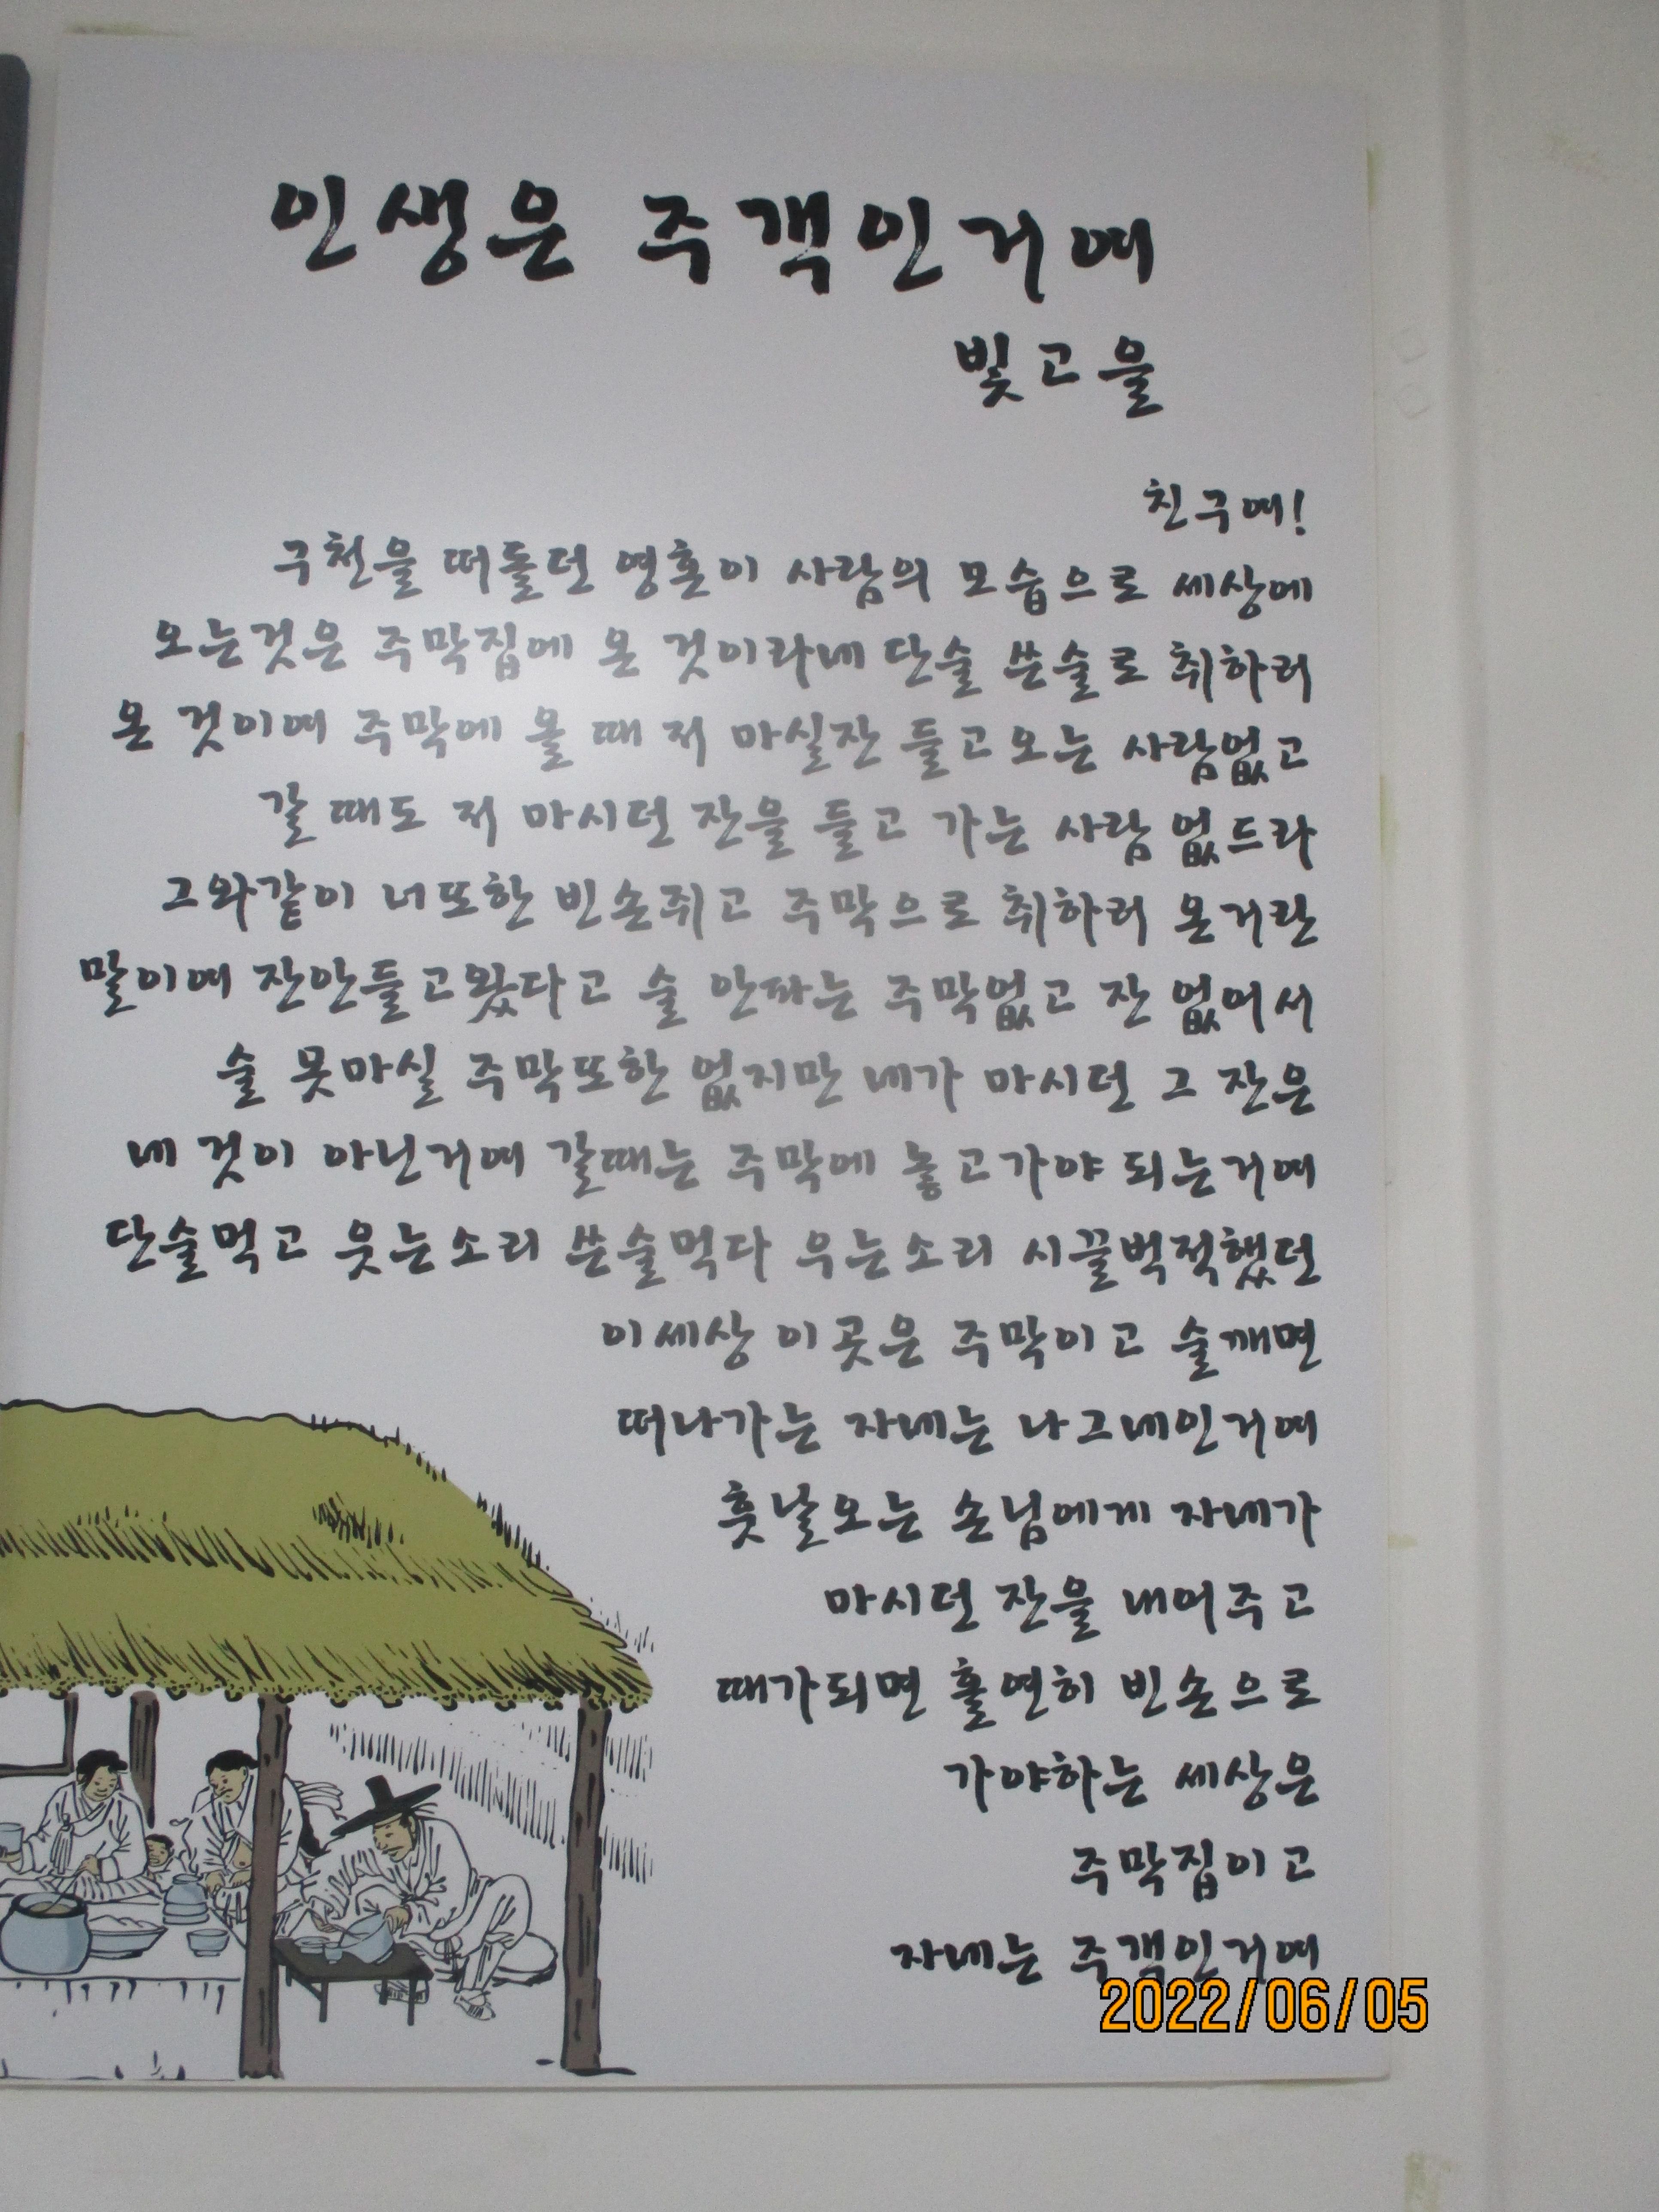 인생은 주객인거여
빛고을
친구여!
구천을 떠돌던 영혼이 사람의 모습으로 세상에
오는것은 주막집에 온 것이라네 단술 쓴술로 취하러
온 것이여 주막에 올 때 저 마실잔 들고오는 사람없고
갈 때도 저 마시던 잔을 들고 가는 사람 없드라
그와같이 너또한 빈손쥐고 주막으로 취하러 온거란
말이여 잔안들고왔다고 술 안파는 주막없고 잔 없어서
술 못마실 주막또한 없지만 네가 마시던 그 잔은
네 것이 아닌거여 갈때는 주막에 놓고가야 되는거여
단술먹고 웃는소리 쓴술먹다 우는소리 시끌벅적했던
이세상 이곳은 주막이고 술깨면
떠나가는 자네는 나그네인거여
훗날오는 손님에게 자네가
마시던 잔을 내어주고
때가되면 홀연히 빈손으로
가야하는 세상은
주막집이고
자네는 주객인거여
2022/06/05